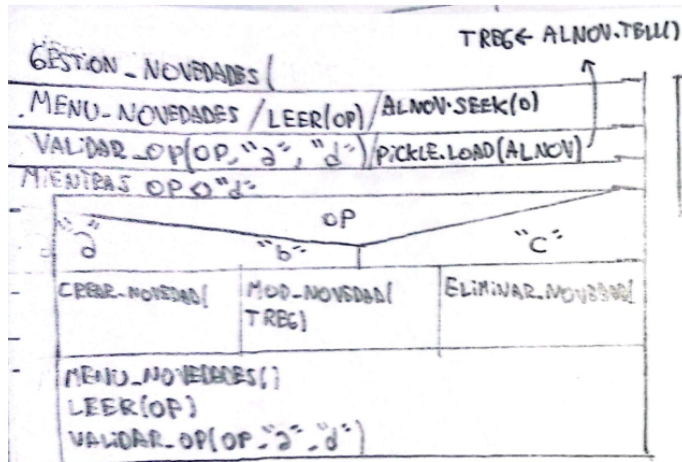 TREG ← ALNOV.TELL()
GESTION_NOVEDADES(
MENU_NOVEDADES / LEER(OP) / ALNOV.SEEK(0)
VALIDAR_OP(OP, "a", "d") / PICKLE.LOAD(ALNOV)
MIENTRAS OP <> "d"
OP
"a" "b" "C"
CREAR_NOVEDAD( MOD_NOVEDAD( ELIMINAR_NOVEDAD(
TREG)
MENU_NOVEDADES()
LEER(OP)
VALIDAR_OP(OP, "a", "d")